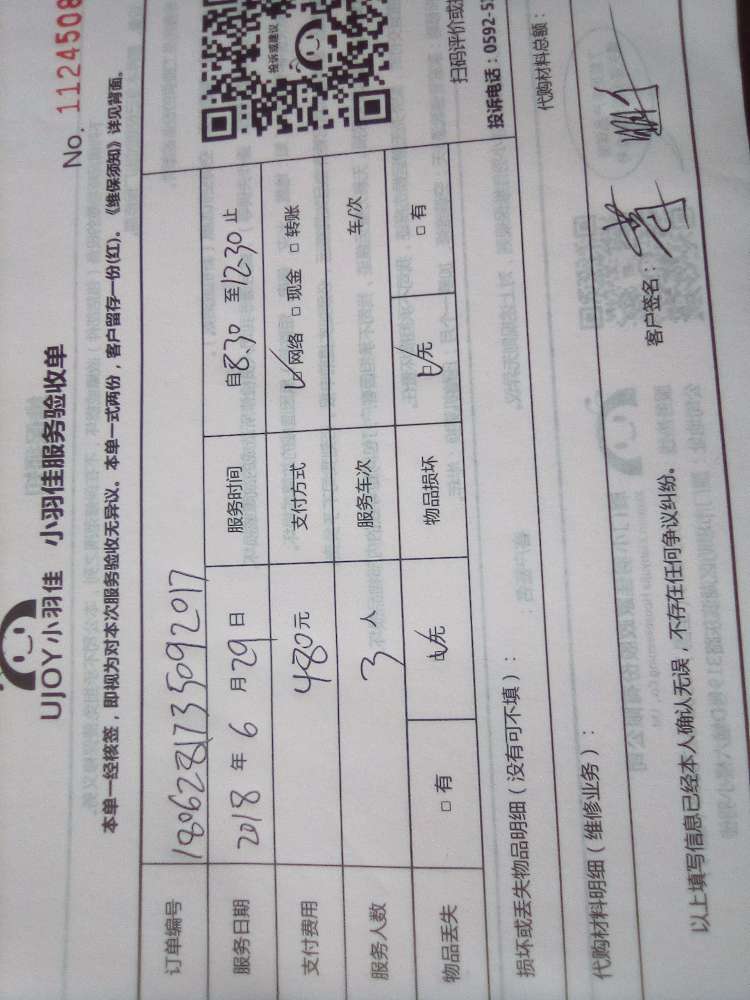 UJOY小羽佳 小羽佳服务验收单
No. 1124508
本单一经核签，即视为对本次服务验收无异议。本单一式两份，客户留存一份(红)。《维保须知》详见背面。
订单编号 1806281735092017
投诉或建议
服务日期 2018 年 6 月 29 日 服务时间 自 8.30 至 12.30 止
支付费用 480 元 支付方式 ☑ 网络 □ 现金 □ 转账
服务人数 3 人 服务车次 车/次
扫码评价或
物品丢失 □ 有 ☑ 无 物品损坏 ☑ 无 □ 有
投诉电话：0592-5
损坏或丢失物品明细（没有可不填）：
代购材料明细（维修业务）： 代购材料总额：
以上填写信息已经本人确认无误，不存在任何争议纠纷。 客户签名：